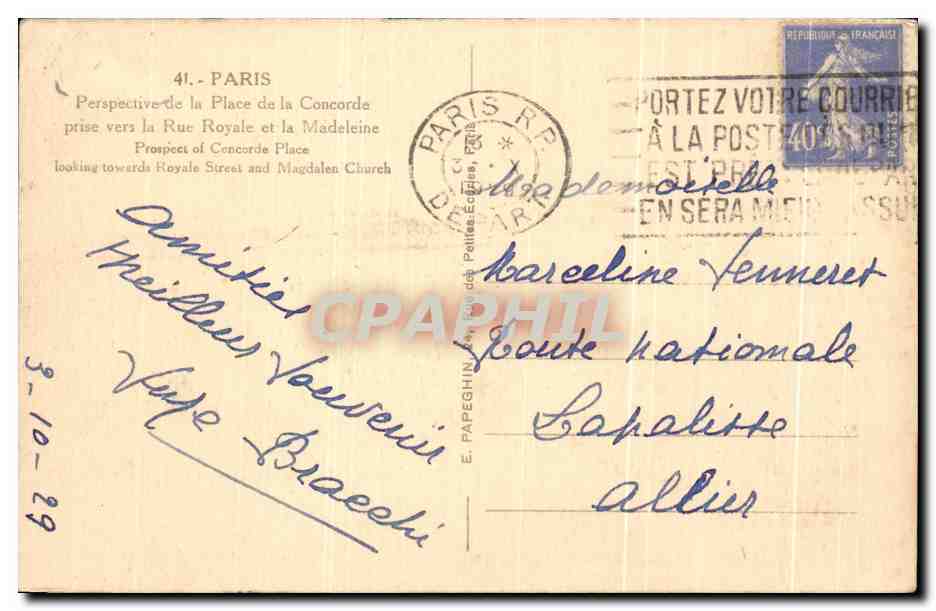 41. - PARIS
Perspective de la Place de la Concorde
prise vers la Rue Royale et la Madeleine
Prospect of Concorde Place
looking towards Royale Street and Magdalen Church
Amitiés
Meilleur Souvenir
Bracchi
3-10-29
E. PAPEGHIN, Rue des Petites-Écuries, Paris
PARIS R.P.
DEPART
RÉPUBLIQUE FRANÇAISE
40c
POSTES
PORTEZ VOTRE COURRIE
À LA POSTE
EST
EN SERA
Mademoiselle
Marceline Jenneret
Route Nationale
Lapalisse
Allier
CPAPHIL